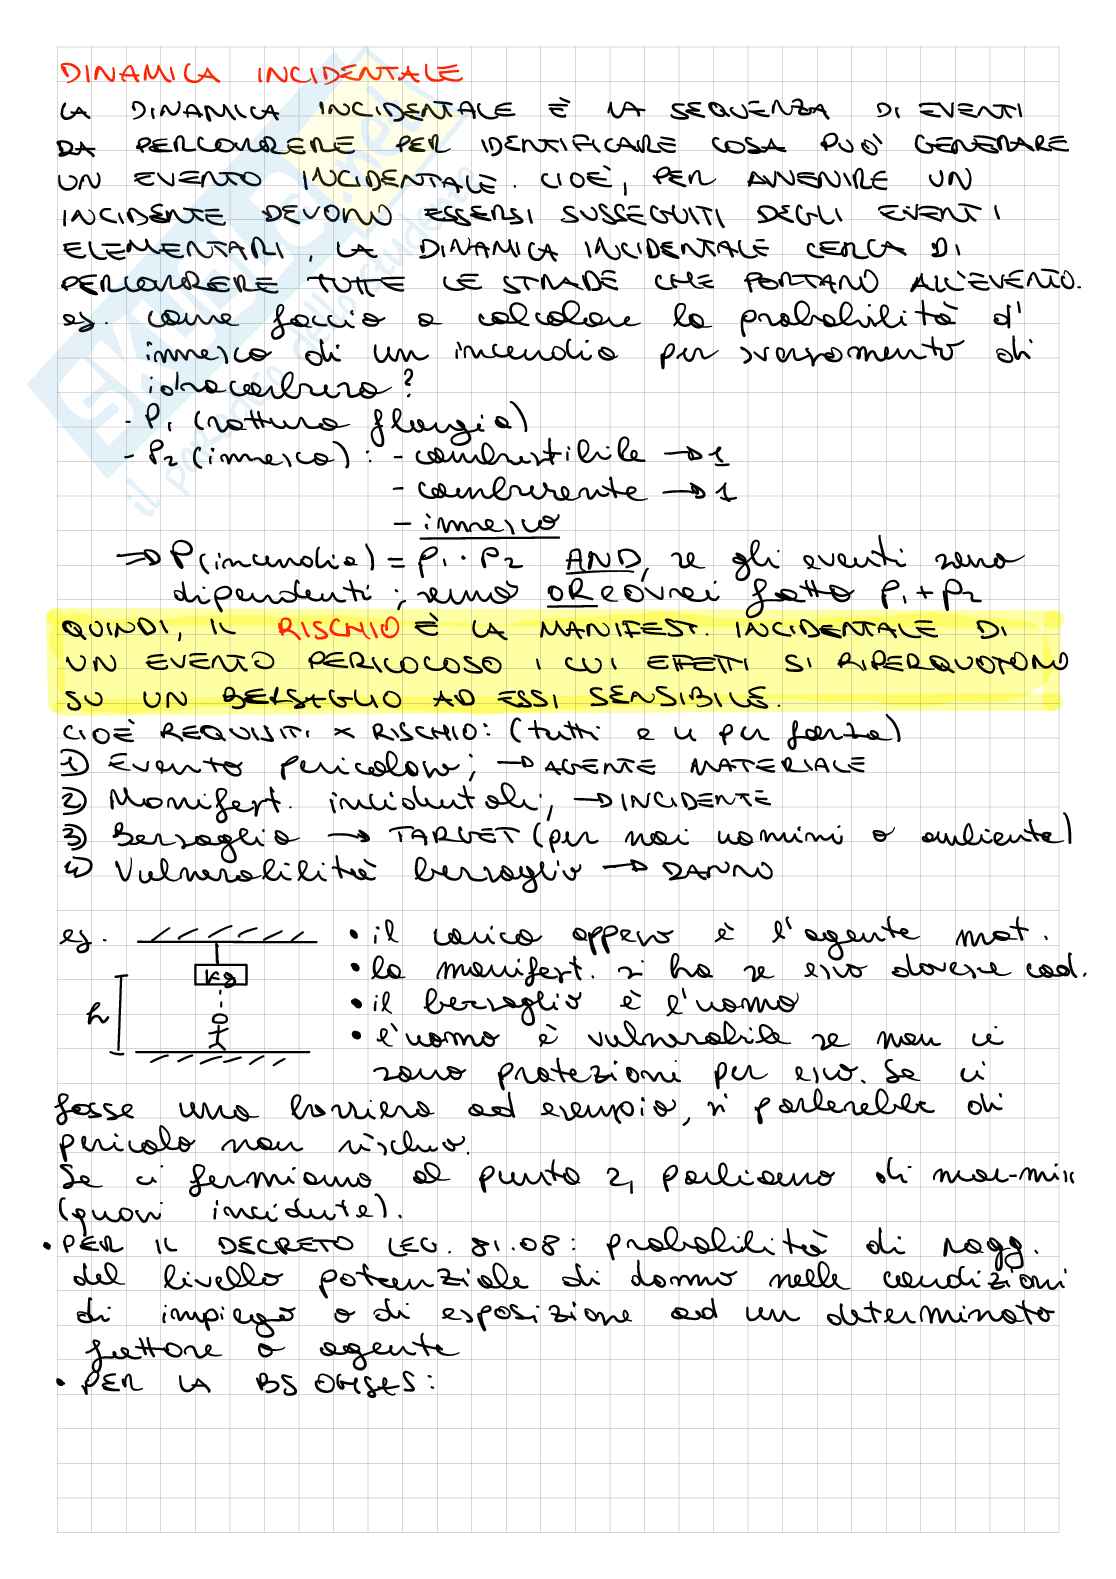 DINAMICA INCIDENTALE
LA DINAMICA INCIDENTALE È LA SEQUENZA DI EVENTI
DA PERCORRERE PER IDENTIFICARE COSA PUÒ GENERARE
UN EVENTO INCIDENTALE. CIOÈ, PER AVVENIRE UN
INCIDENTE DEVONO ESSERSI SUSSEGUITI DEGLI EVENTI
ELEMENTARI, LA DINAMICA INCIDENTALE CERCA DI
PERCORRERE TUTTE LE STRADE CHE PORTANO ALL'EVENTO.
es. come faccio a calcolare la probabilità d'
innesco di un incendio per sversamento di
idrocarburo?
- P1 (rottura flangia)
- P2 (innesco): - combustibile → 1
- comburente → 1
- innesco
⇒ P(incendio) = P1 · P2 AND, se gli eventi sono
dipendenti; sennò OR e avrei fatto P1 + P2
QUINDI, IL RISCHIO È LA MANIFEST. INCIDENTALE DI
UN EVENTO PERICOLOSO I CUI EFFETTI SI RIPERQUOTONO
SU UN BERSAGLIO AD ESSI SENSIBILE.
CIOÈ REQUISITI x RISCHIO: (tutti e 4 per forza)
1) Evento pericoloso; → AGENTE MATERIALE
2) Manifest. incidentale; → INCIDENTE
3) Bersaglio → TARGET (per noi uomini o ambiente)
4) Vulnerabilità bersaglio → DANNO
es.
kg
h
• il carico appeso è l'agente mat.
• la manifest. si ha se esso dovesse cad.
• il bersaglio è l'uomo
• l'uomo è vulnerabile se non ci
sono protezioni per esso. Se ci
fosse una barriera ad esempio, si parlerebbe di
pericolo non rischio.
Se ci fermiamo al punto 2, parliamo di near-miss
(quasi incidente).
• PER IL DECRETO LEG. 81.08: probabilità di ragg.
del livello potenziale di danno nelle condizioni
di impiego o di esposizione ad un determinato
fattore o agente
• PER LA BS OHSAS: